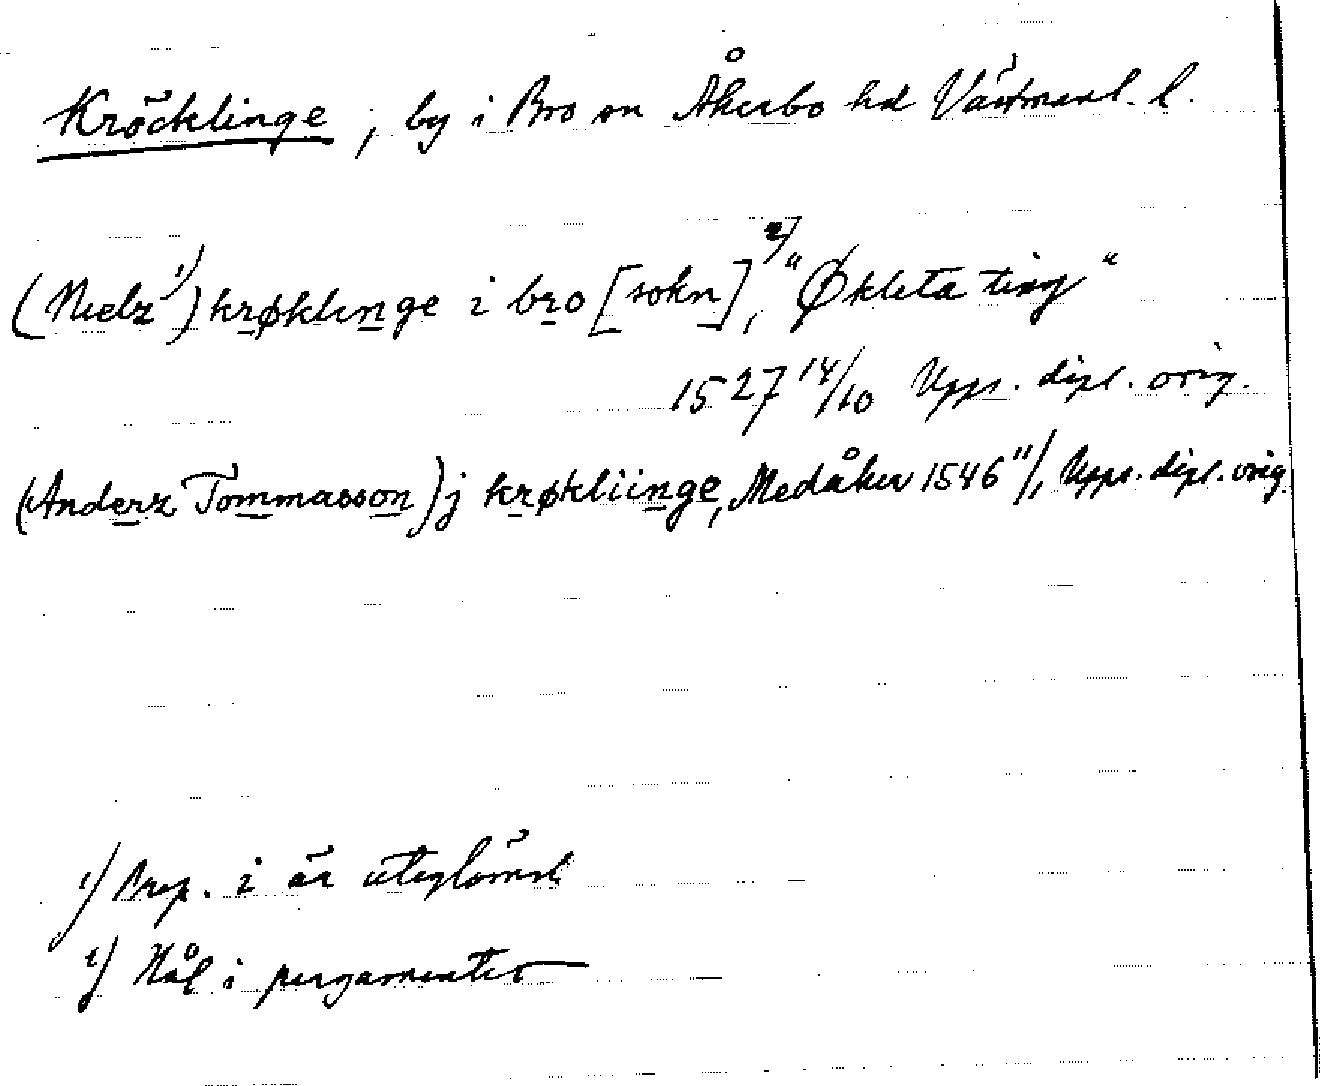 Kröcklinge, by i Bro sn Åkerbo hd Västmanl. l.
(Nielz ¹⁾) krøklinge i bro [sokn] ²⁾, "Økleta ting"
1527 14/10 Upps. dipl. orig.
(Anderz Tommasson) j krøkliinge, Medåker 1546 11/1 Upps. dipl. orig.
1) Prep. i är uteglömd
2) Hål i pergamentet